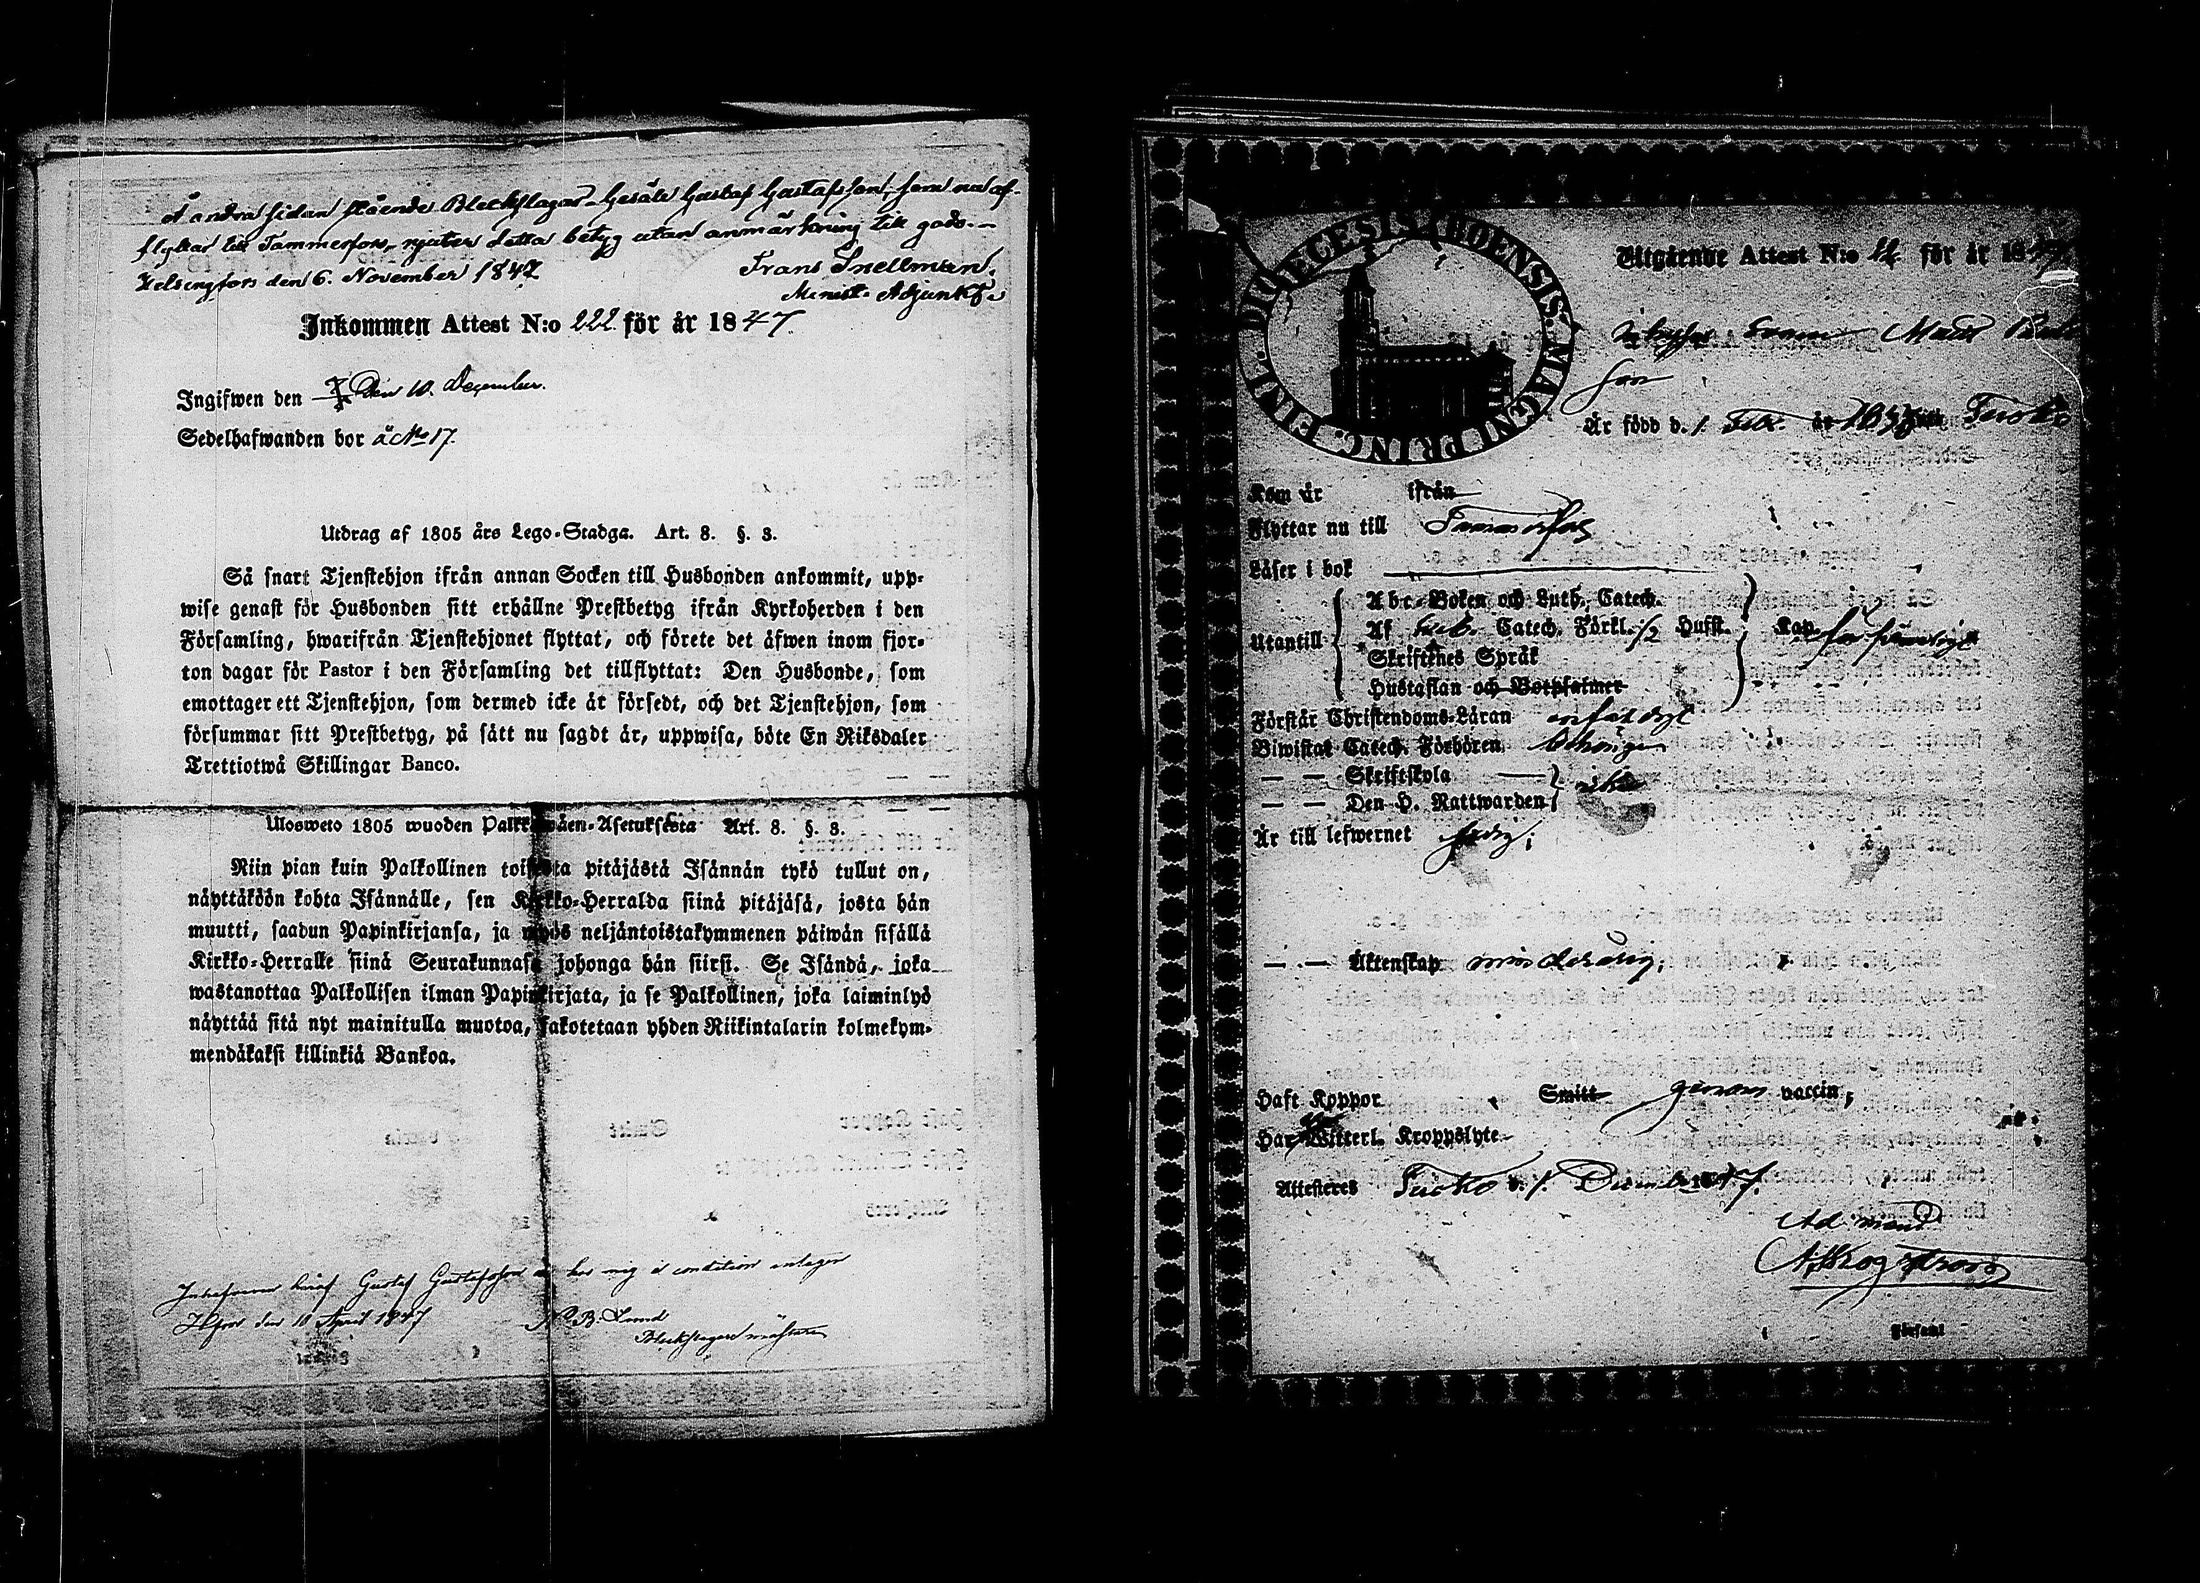 Å andra sidan stående Bleckslagar-Gesäle Gustaf Gustafsson, som nu af-
flyttar till Tammerfors, njuter detta betyg utan anmärkning till godo.—
Helsingfors den 6. November 1847
Frans Snellman.
Minist. Adjunkt.
Inkommen Attest N:o 222. för år 1847.
Ingifwen den Den 10. December.
Sedelhafwanden bor å No 17.
Utdrag af 1805 års Lego-Stadga. Art. 8. §. 3.
Så snart Tjenstehjon ifrån annan Socken till Husbonden ankommit, upp-
wise genast för Husbonden sitt erhållne Prestbetyg ifrån Kyrkoherden i den
Församling, hwarifrån Tjenstehjonet flyttat, och förete det åfwen inom fjor-
ton dagar för Pastor i den Församling det tillflyttat: Den Husbonde, som
emottager ett Tjenstehjon, som dermed icke är försedt, och det Tjenstehjon, som
försummar sitt Prestbetyg, på sätt nu sagdt är, uppwisa, böte En Riksdaler
Trettiotwå Skillingar Banco.
Ulosweto 1805 wuoden Asetuksesta Art. 8. §. 3.
Niin pian kuin Palkollinen toisesta pitäjästä Isännän tykö tullut on,
näyttäköön kohta Isännälle, sen Kirkko-Herralda siinä pitäjäsä, josta hän
muutti, saadun Papinkirjansa, ja myös neljäntoistakymmenen päiwän sisällä
Kirkko-Herralle siinä Seurakunnasa johonga hän siirsi. Se Isändä, joka
wastanottaa Palkollisen ilman Papinkirjata, ja se Palkollinen, joka laiminlyö
näyttää sitä nyt mainitulla muotoa, sakotetaan yhden Riikintalarin kolmekym-
mendäkaksi killinkiä Bankoa.
Gustaf Gustafsson har mig i condition antagen
H:fors den 10 April 1847
B. Lund
Bleckslagare mästare
DIOECESIS ABOENSIS. MAGNI PRINC. FINL.
Utgående Attest N:o 12 för år 1847.
son
Är född d. 1 Febr. år
Kom år ifrån
Flyttar nu till Tammerfors
Läser i bok
Abc-Boken och Luth. Catech.
Utantill Af Catech. Förkl. Hufst. Kap.
Skriftenes Språk
Hustaflan och Botpsalmer
Förstår Christendoms-Läran enfaldigt
Biwistat Catech. Förhören behörigen
— — Skriftskola
— — Den H. Nattwarden icke
Är till lefwernet
— — Äktenskap minderårig;
Haft Koppor Smitt genom vaccin;
Har Witterl. Kroppslyte
Attesteres d. 1. December 1847.
Ad mand.
Församl